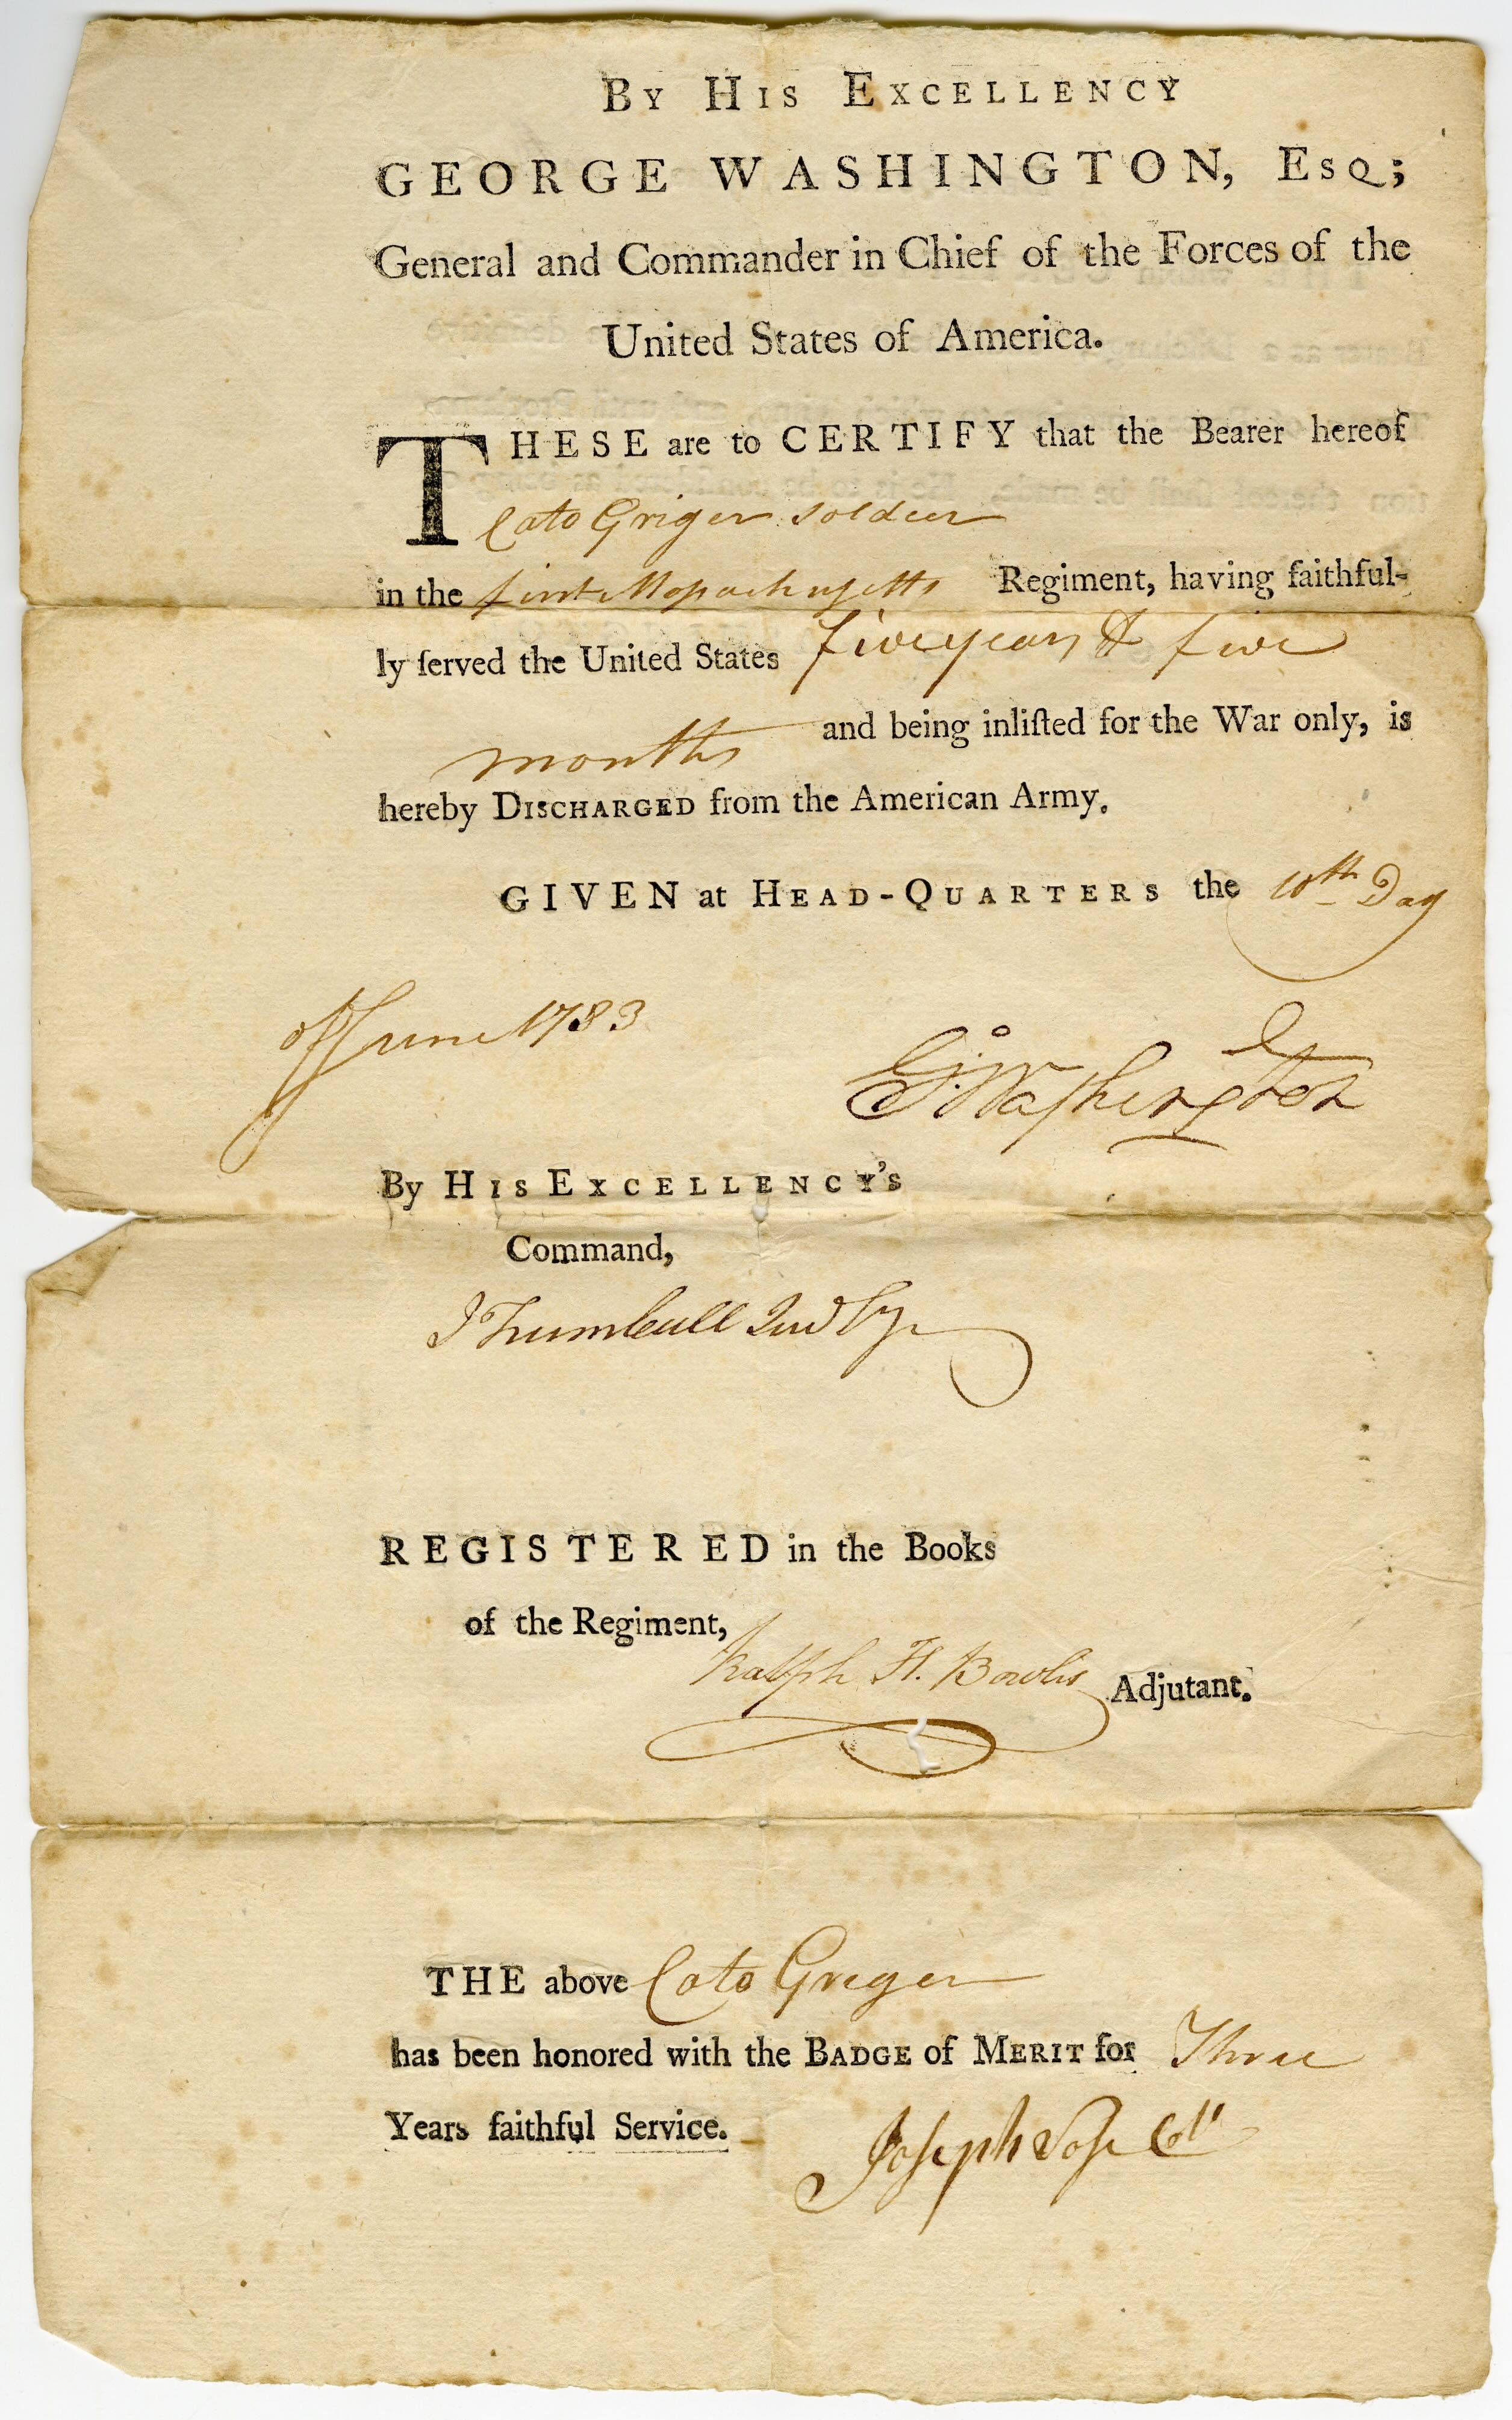 By His Excellency
GEORGE WASHINGTON, Esq;
General and Commander in Chief of the Forces of the
United States of America.
THESE are to CERTIFY that the Bearer hereof
Cato Griger soldier
in the first Massachusetts Regiment, having faithful-
ly ſerved the United States five years & five
months and being inliſted for the War only, is
hereby Discharged from the American Army.
GIVEN at Head-Quarters the 10th Day
of June 1783
G:o Washington
By His Excellency's
Command,
J Trumbull Jun
REGISTERED in the Books
of the Regiment,
Ralph H. Bowles Adjutant.
THE above Cato Griger
has been honored with the Badge of Merit for Three
Years faithful Service.
Joseph Vose Coll